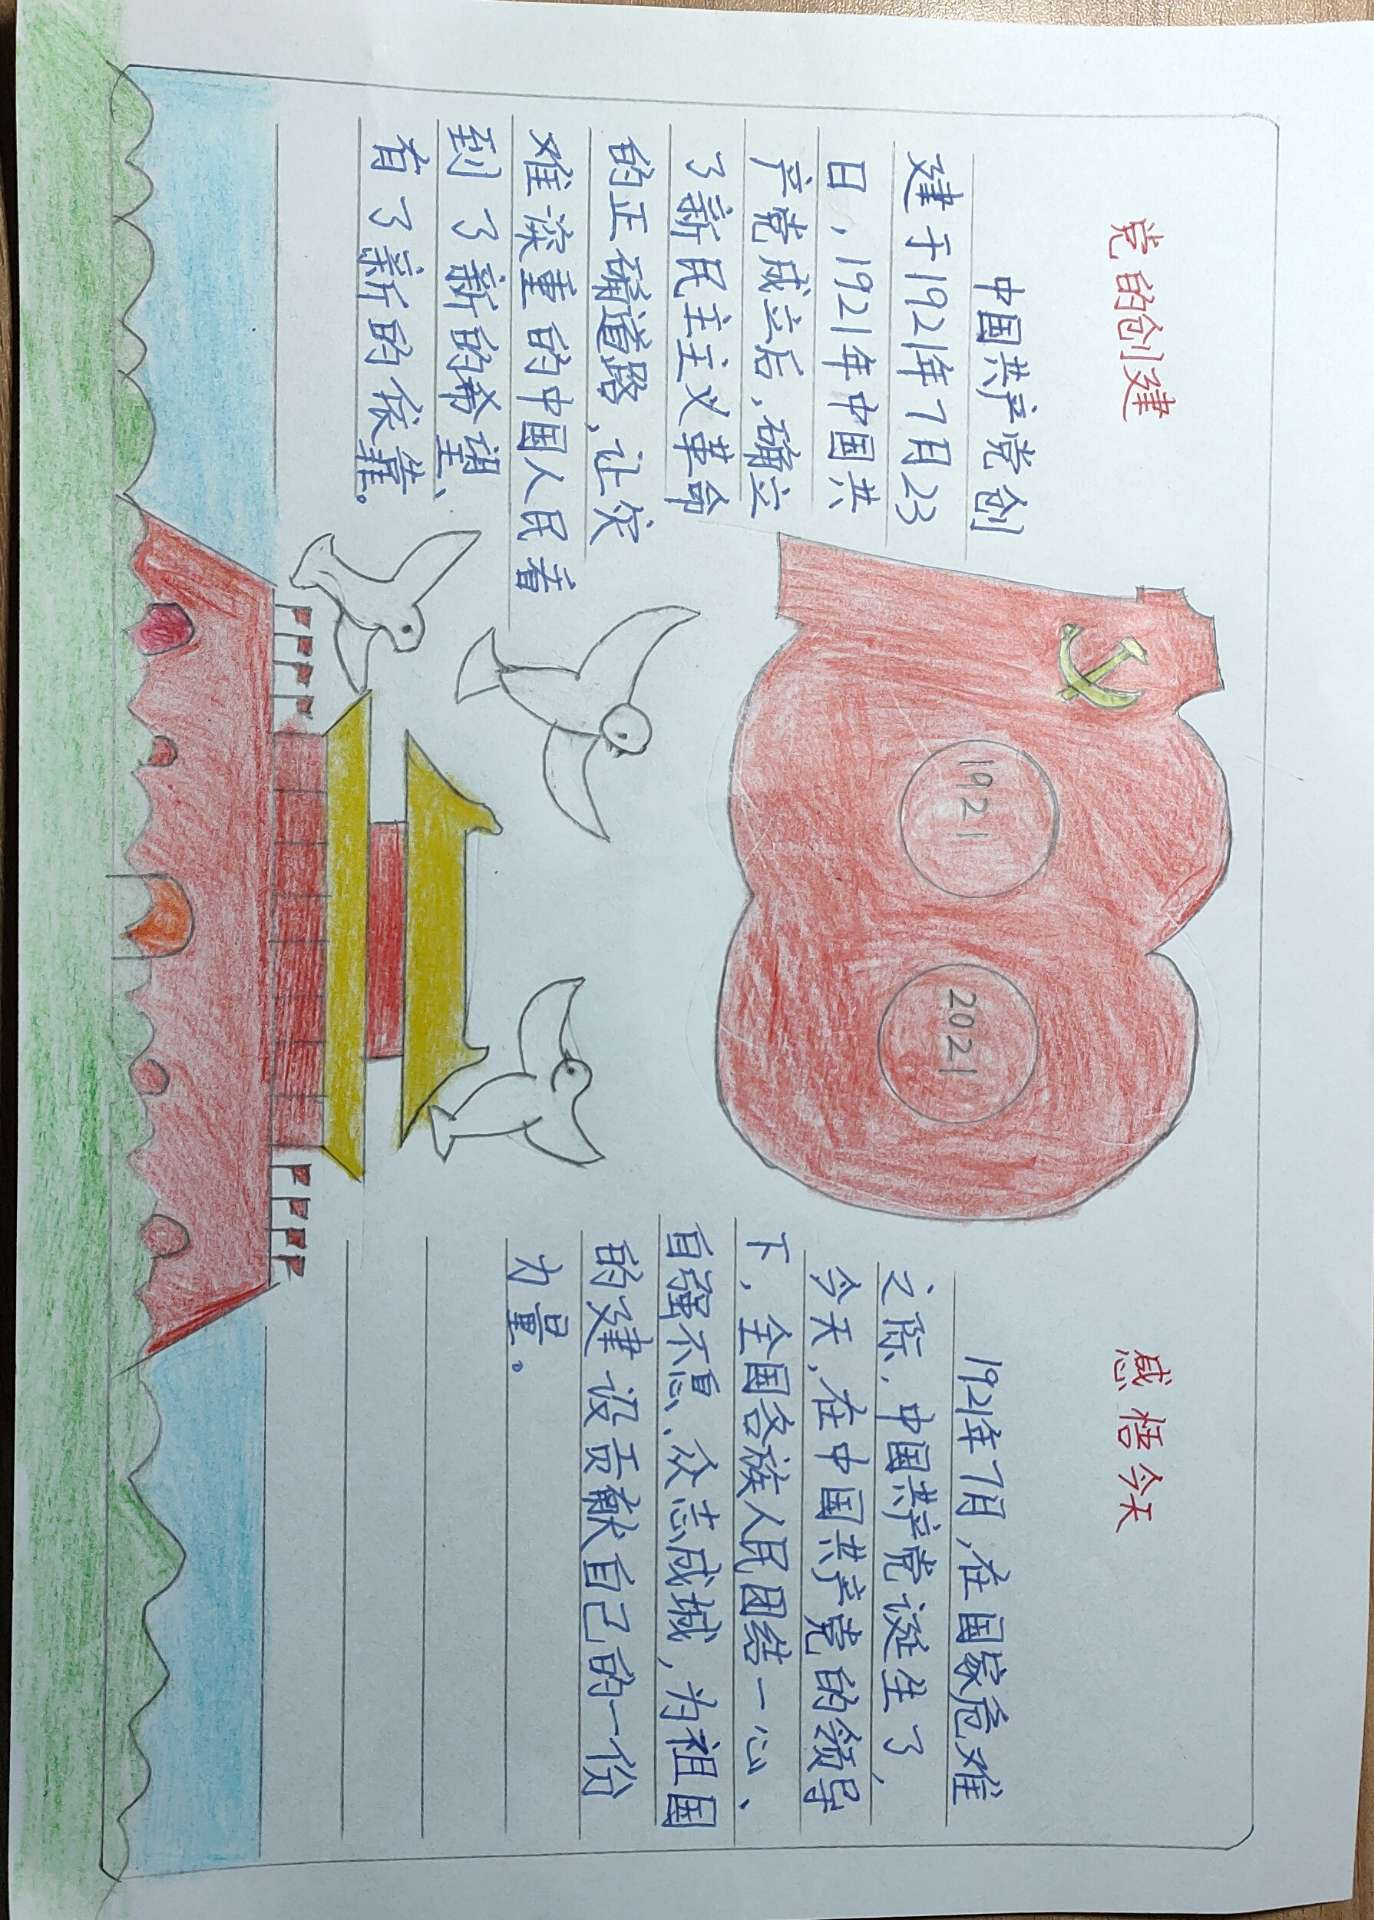 党的创建
中国共产党创
建于1921年7月23
日，1921年中国共
产党成立后，确立
了新民主主义革命
的正确道路，让灾
难深重的中国人民看
到了新的希望、
有了新的依靠。
1921
2021
感悟今天
1921年7月，在国家危难
之际，中国共产党诞生了，
今天，在中国共产党的领导
下，全国各族人民团结一心、
自强不息、众志成城，为祖国
的建设贡献自己的一份
力量。